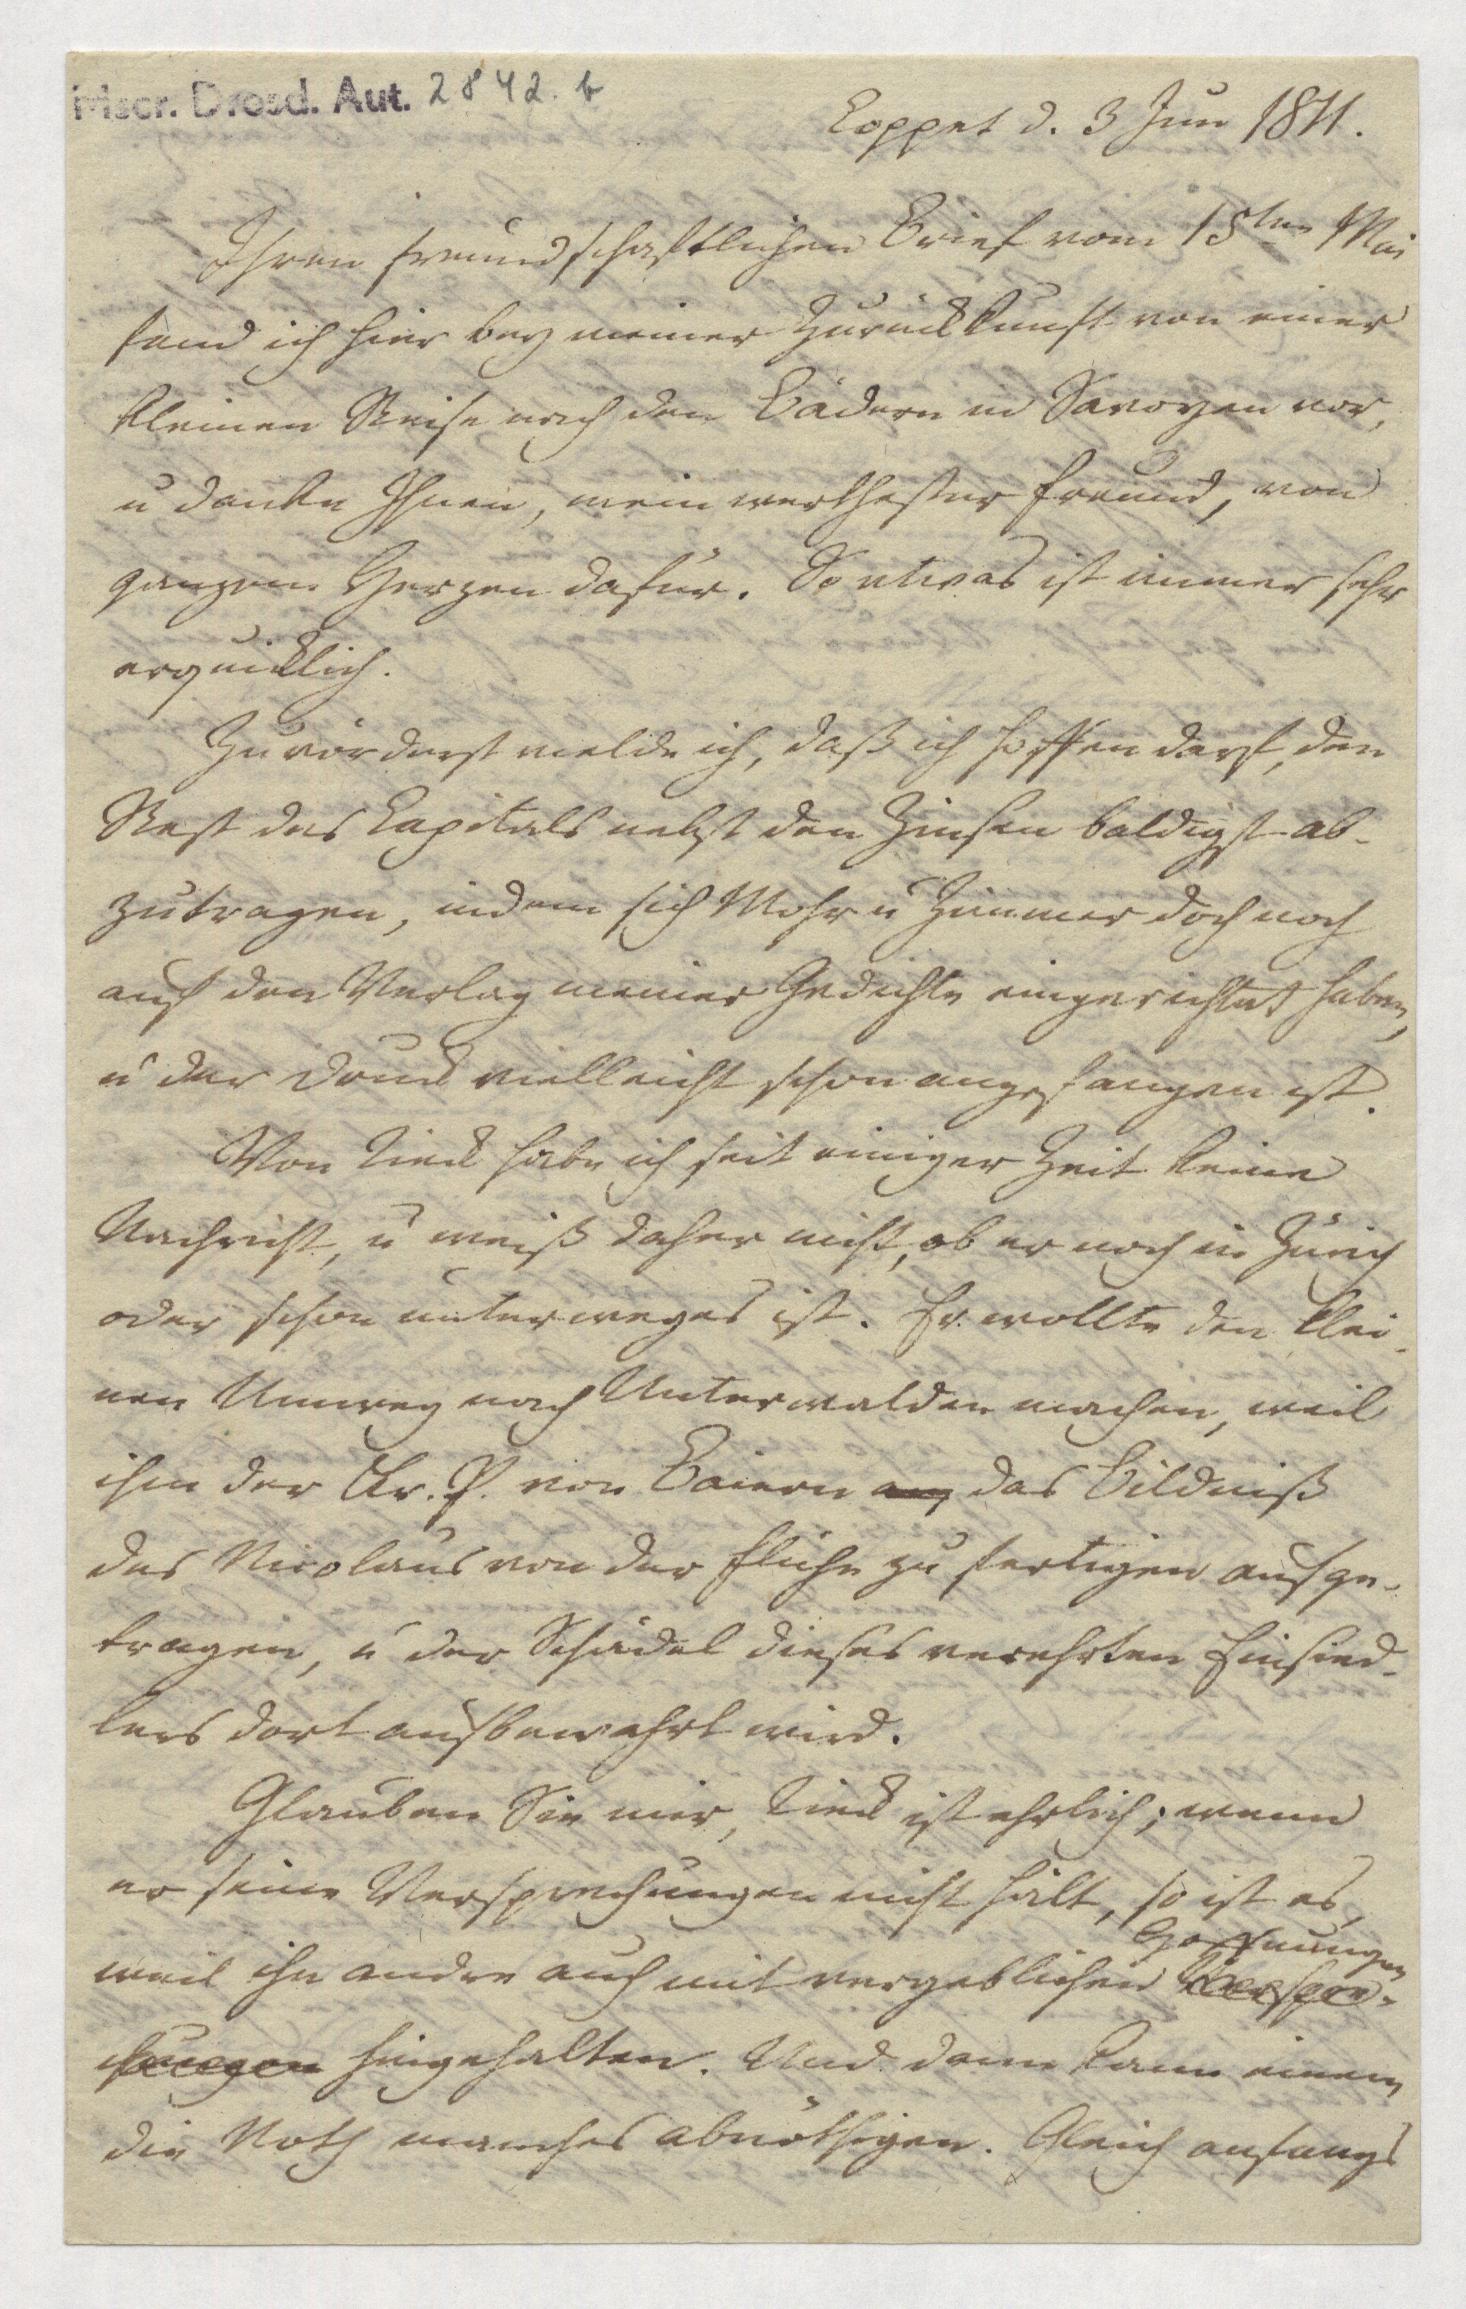 Mscr. Dresd. Aut. 2842. b
Coppet d. 3 Jun 1811.
Ihren freundschaftlichen Brief vom 15ten Mai
fand ich hier bey meiner Zurückkunft von einer
kleinen Reise nach den Bädern in Savoyen vor,
u danke Ihnen, mein werthester Freund, von
ganzem Herzen dafür. So etwas ist immer sehr
erquicklich.
Zuvörderst melde ich, daß ich hoffen darf, den
Rest des Capitals nebst den Zinsen baldigst ab-
zutragen, indem sich Mohr u Zimmer doch noch
auf den Verlag meiner Gedichte eingerichtet haben,
u der Druck vielleicht schon angefangen ist.
Von Tieck habe ich seit einiger Zeit keine
Nachricht, u weiß daher nicht, ob er noch in Zürich
oder schon unterweges ist. Er wollte den klei-
nen Umweg nach Unterwalden machen, weil
ihm der Kr. P. von Baiern das Bildniß
des Nicolaus von der Flühe zu fertigen aufge-
tragen, u der Schädel dieses verehrten Einsied-
lers dort aufbewahrt wird.
Glauben Sie mir, Tieck ist ehrlich; wenn
er seine Versprechungen nicht hält, so ist es,
Hoffnungen
weil ihn andre auch mit vergeblichen Verspre-
chungen hingehalten. Und dann kann einem
die Noth manches abnöthigen. Gleich anfangs